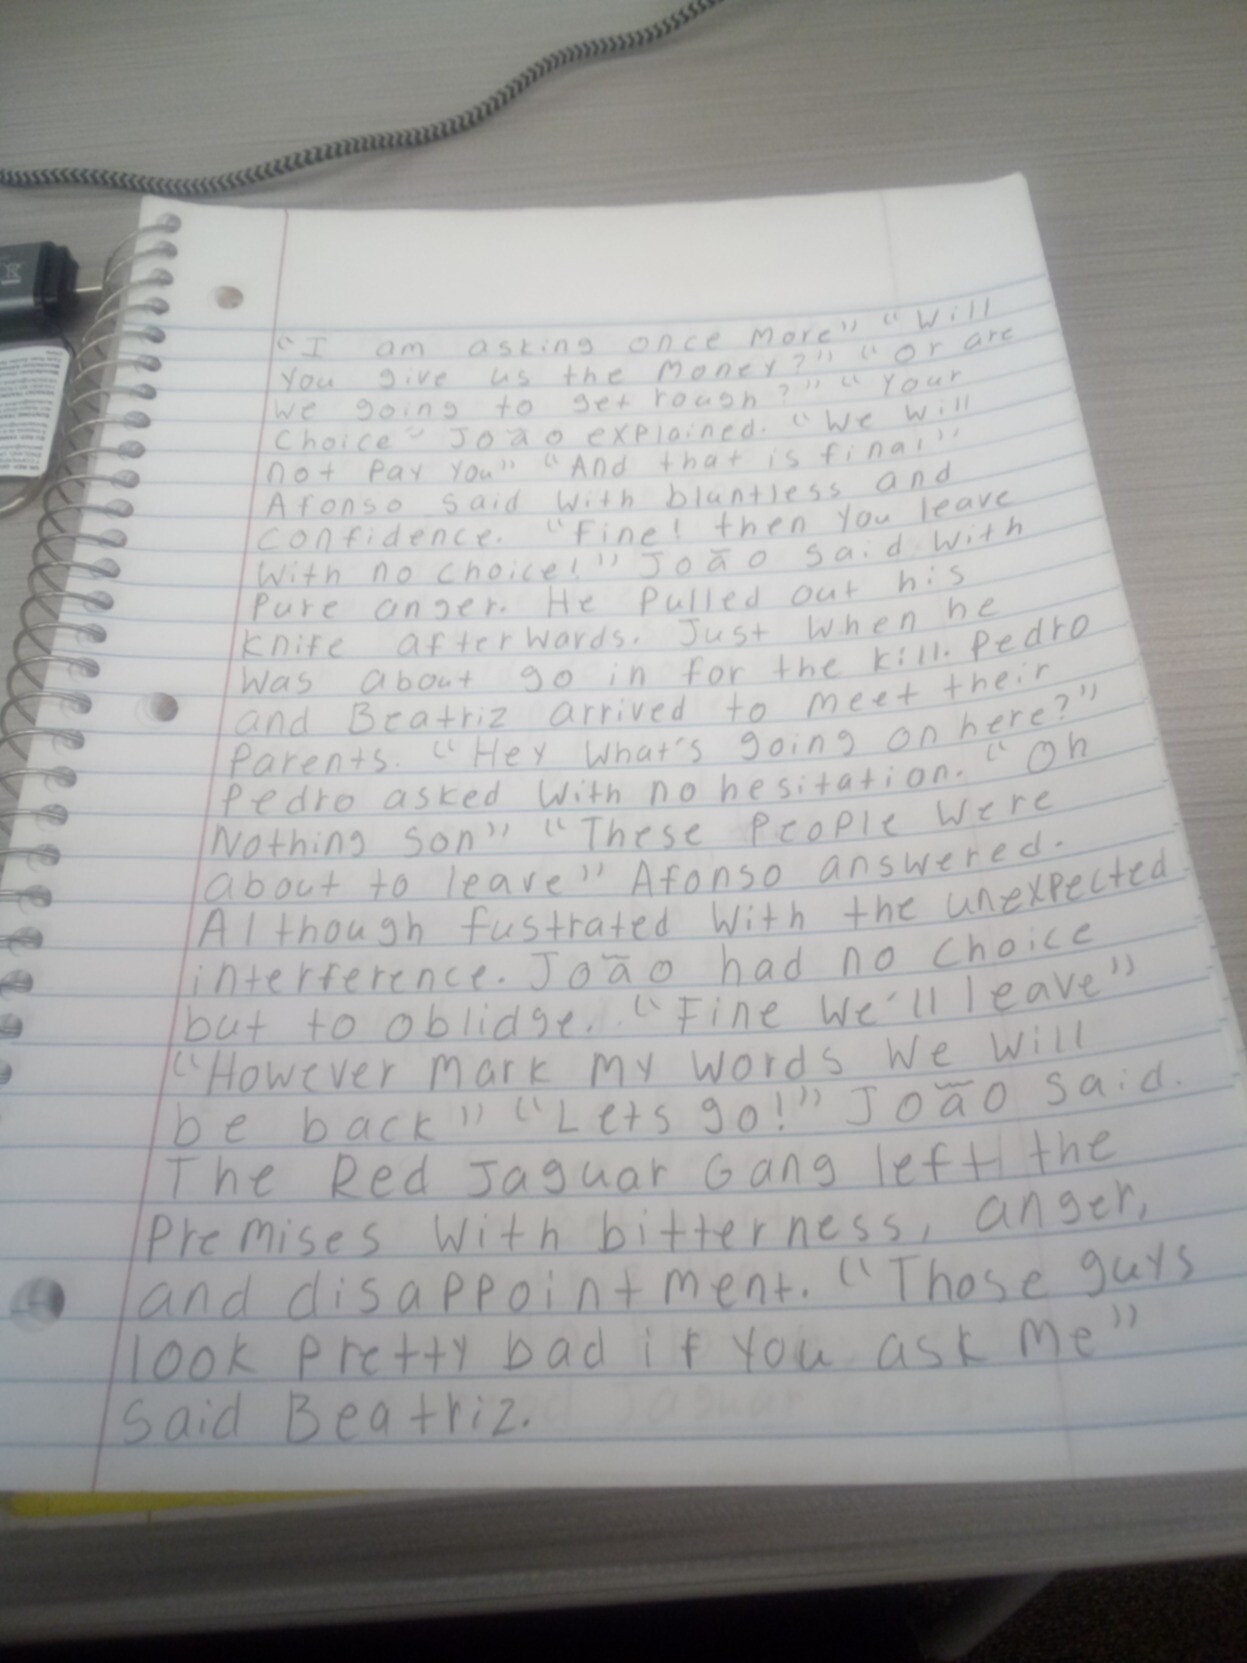 “I am asking once more” “Will
you give us the money?” “Or are
we going to get rough?” “Your
choice” João explained. “We will
not pay you” “And that is final”
Afonso said with bluntless and
confidence. “Fine! then you leave
with no choice!” João said with
pure anger. He pulled out his
knife afterwards. Just when he
was about go in for the kill. Pedro
and Beatriz arrived to meet their
parents. “Hey what's going on here?”
Pedro asked with no hesitation. “Oh
Nothing son” “These people were
about to leave” Afonso answered.
Although fustrated with the unexpected
interference. João had no choice
but to oblidge. “Fine we'll leave”
“However mark my words we will
be back” “Lets go!” João said.
The Red Jaguar Gang left the
premises with bitterness, anger,
and disappointment. “Those guys
look pretty bad if you ask me”
said Beatriz.